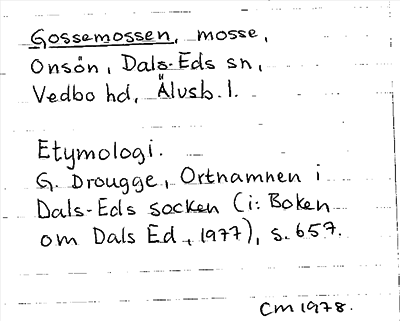 Gossemossen, mosse,
Onsön, Dals-Eds sn,
Vedbo hd, Älvsb. l.
Etymologi.
G. Drougge, Ortnamnen i
Dals-Eds socken (i: Boken
om Dals Ed, 1977), s. 657.
CM 1978.